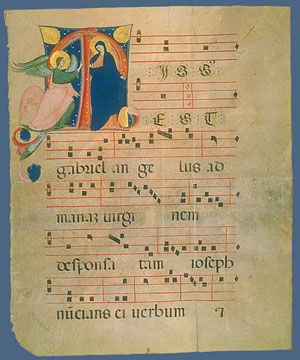 MISS
EST
gabriel an ge lus ad
mariaꝫ uirgi nem
desponsa tam ioseph
nūcians ei uerbum ⁊